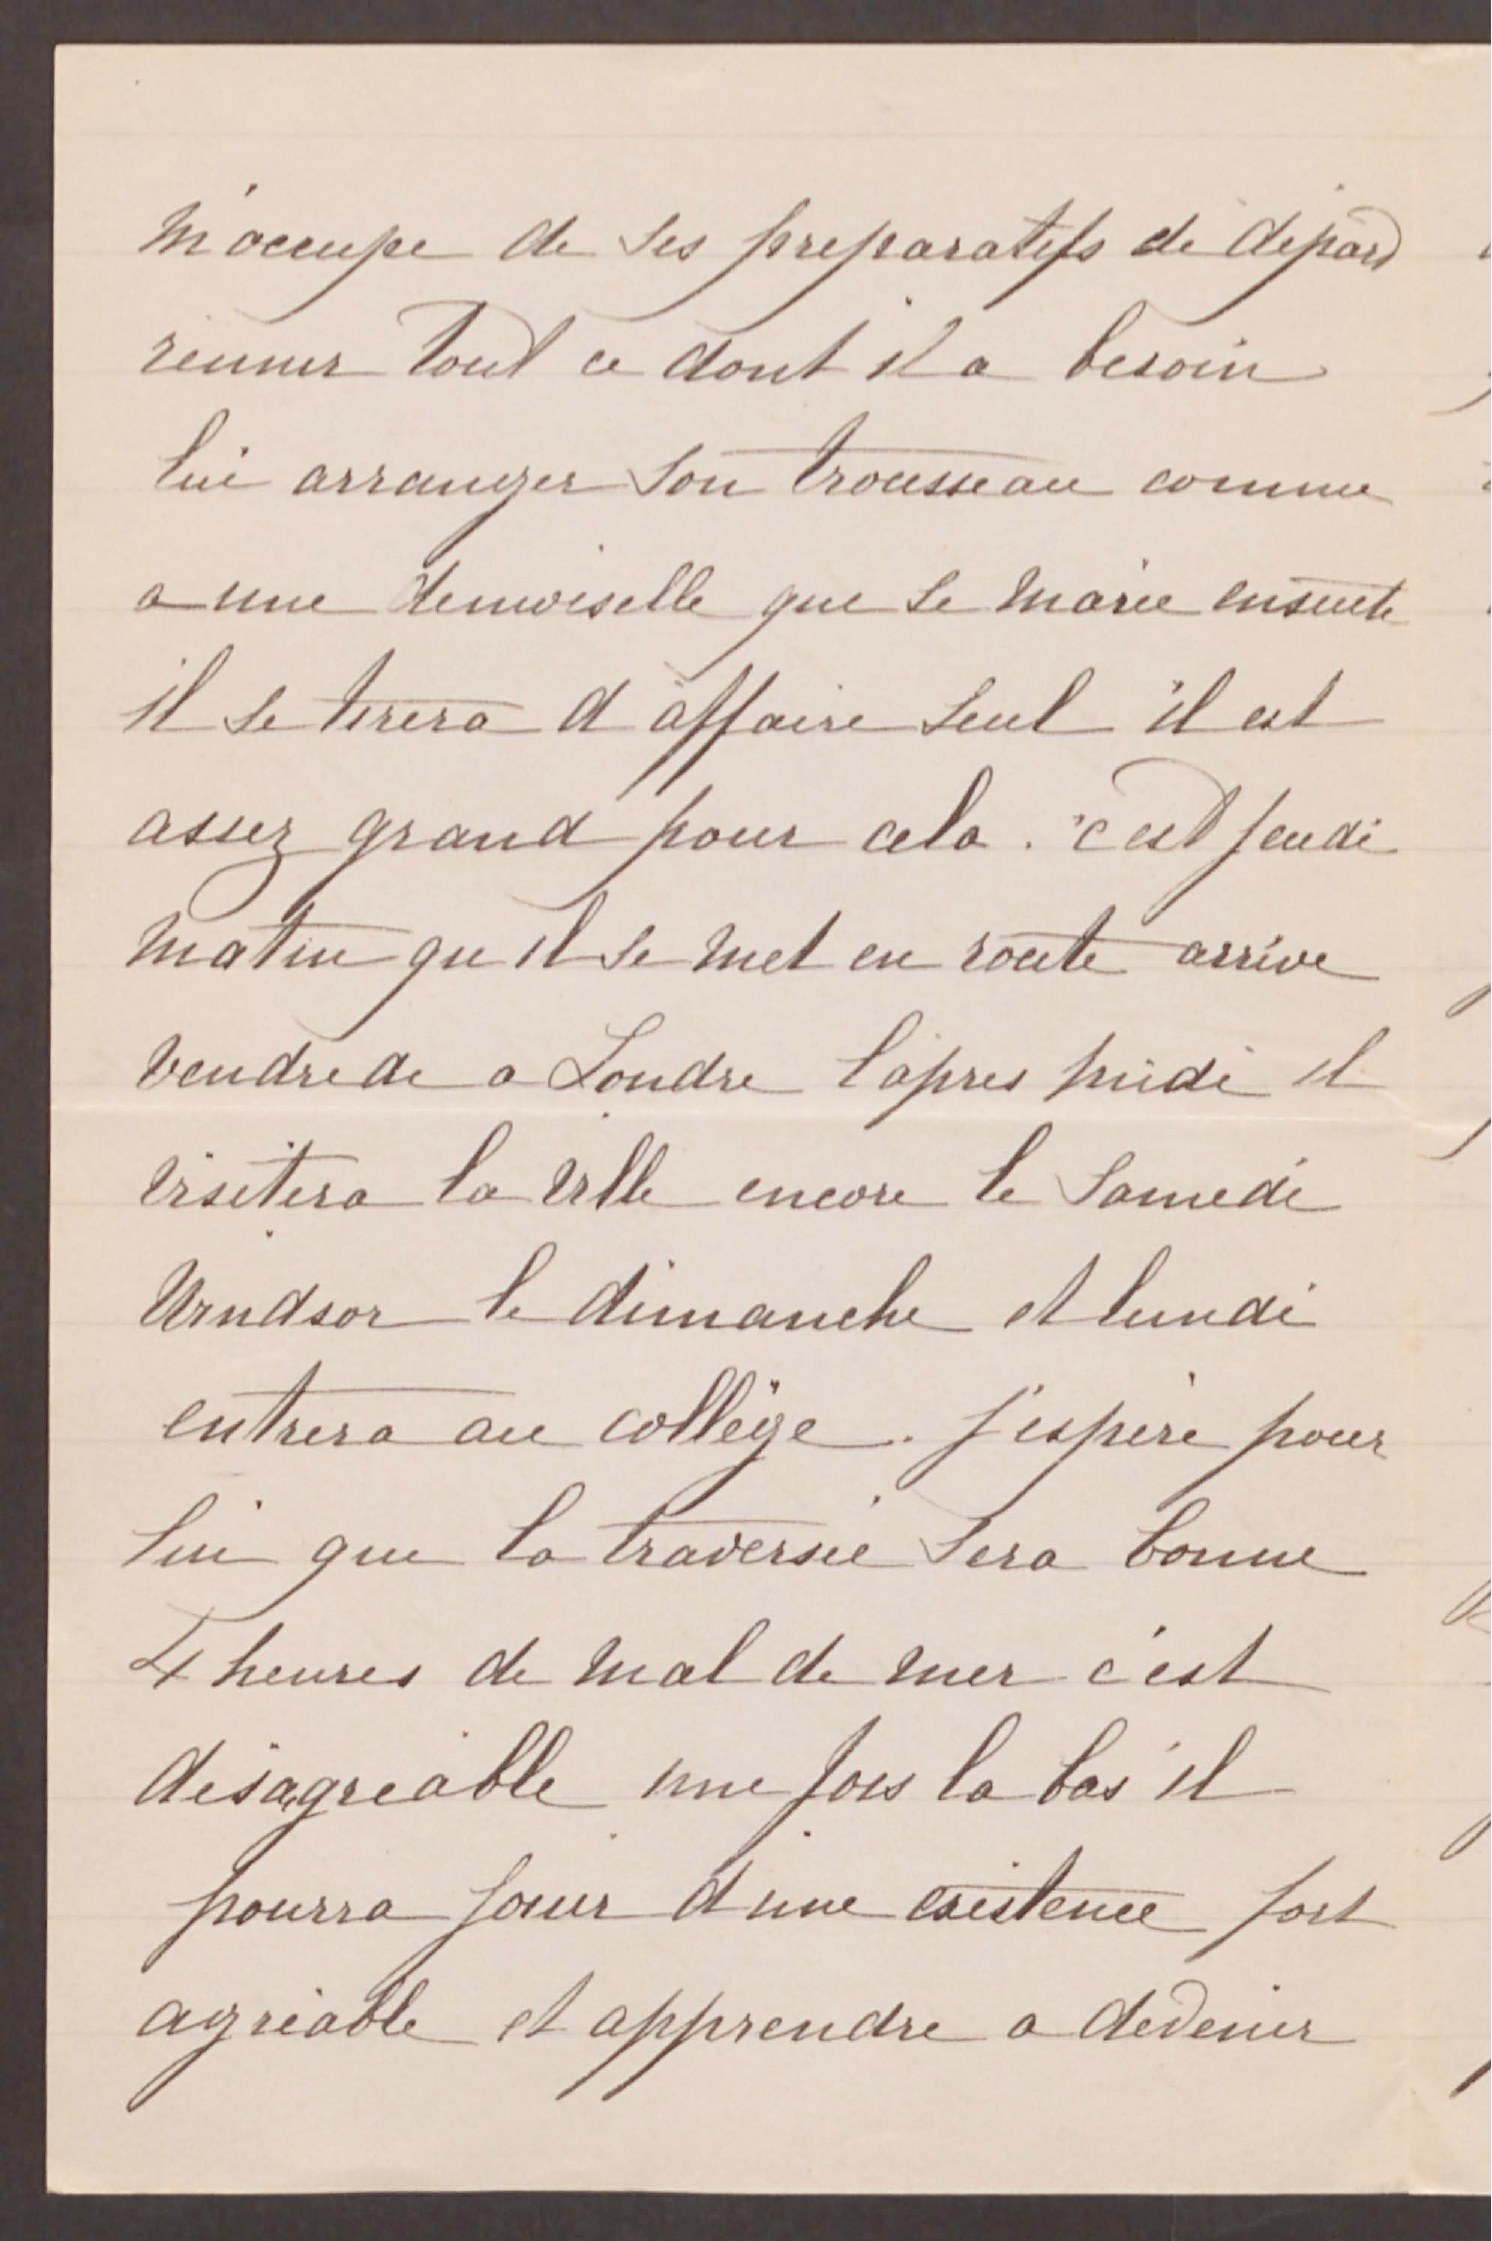 m'occupe de ses preparatifs de départ
reunir tout ce dont il a besoin
lui arranger son trousseau comme
a une demoiselle que se marie ensuite
il se tirera d'affaire seul il est
assez grand pour cela. c'est jeudi
matin qu'il se met en route arrive
vendredi a Londre l'apres midi il
visitera la ville encore le samedi
Windsor le dimanche et lundi
entrera au collège. j'espère pour
lui que la traversée sera bonne
4 heures de mal de mer c'est
desagreable une fois la bas il
pourra jouir d'une existence fort
agréable et apprendre a devenir